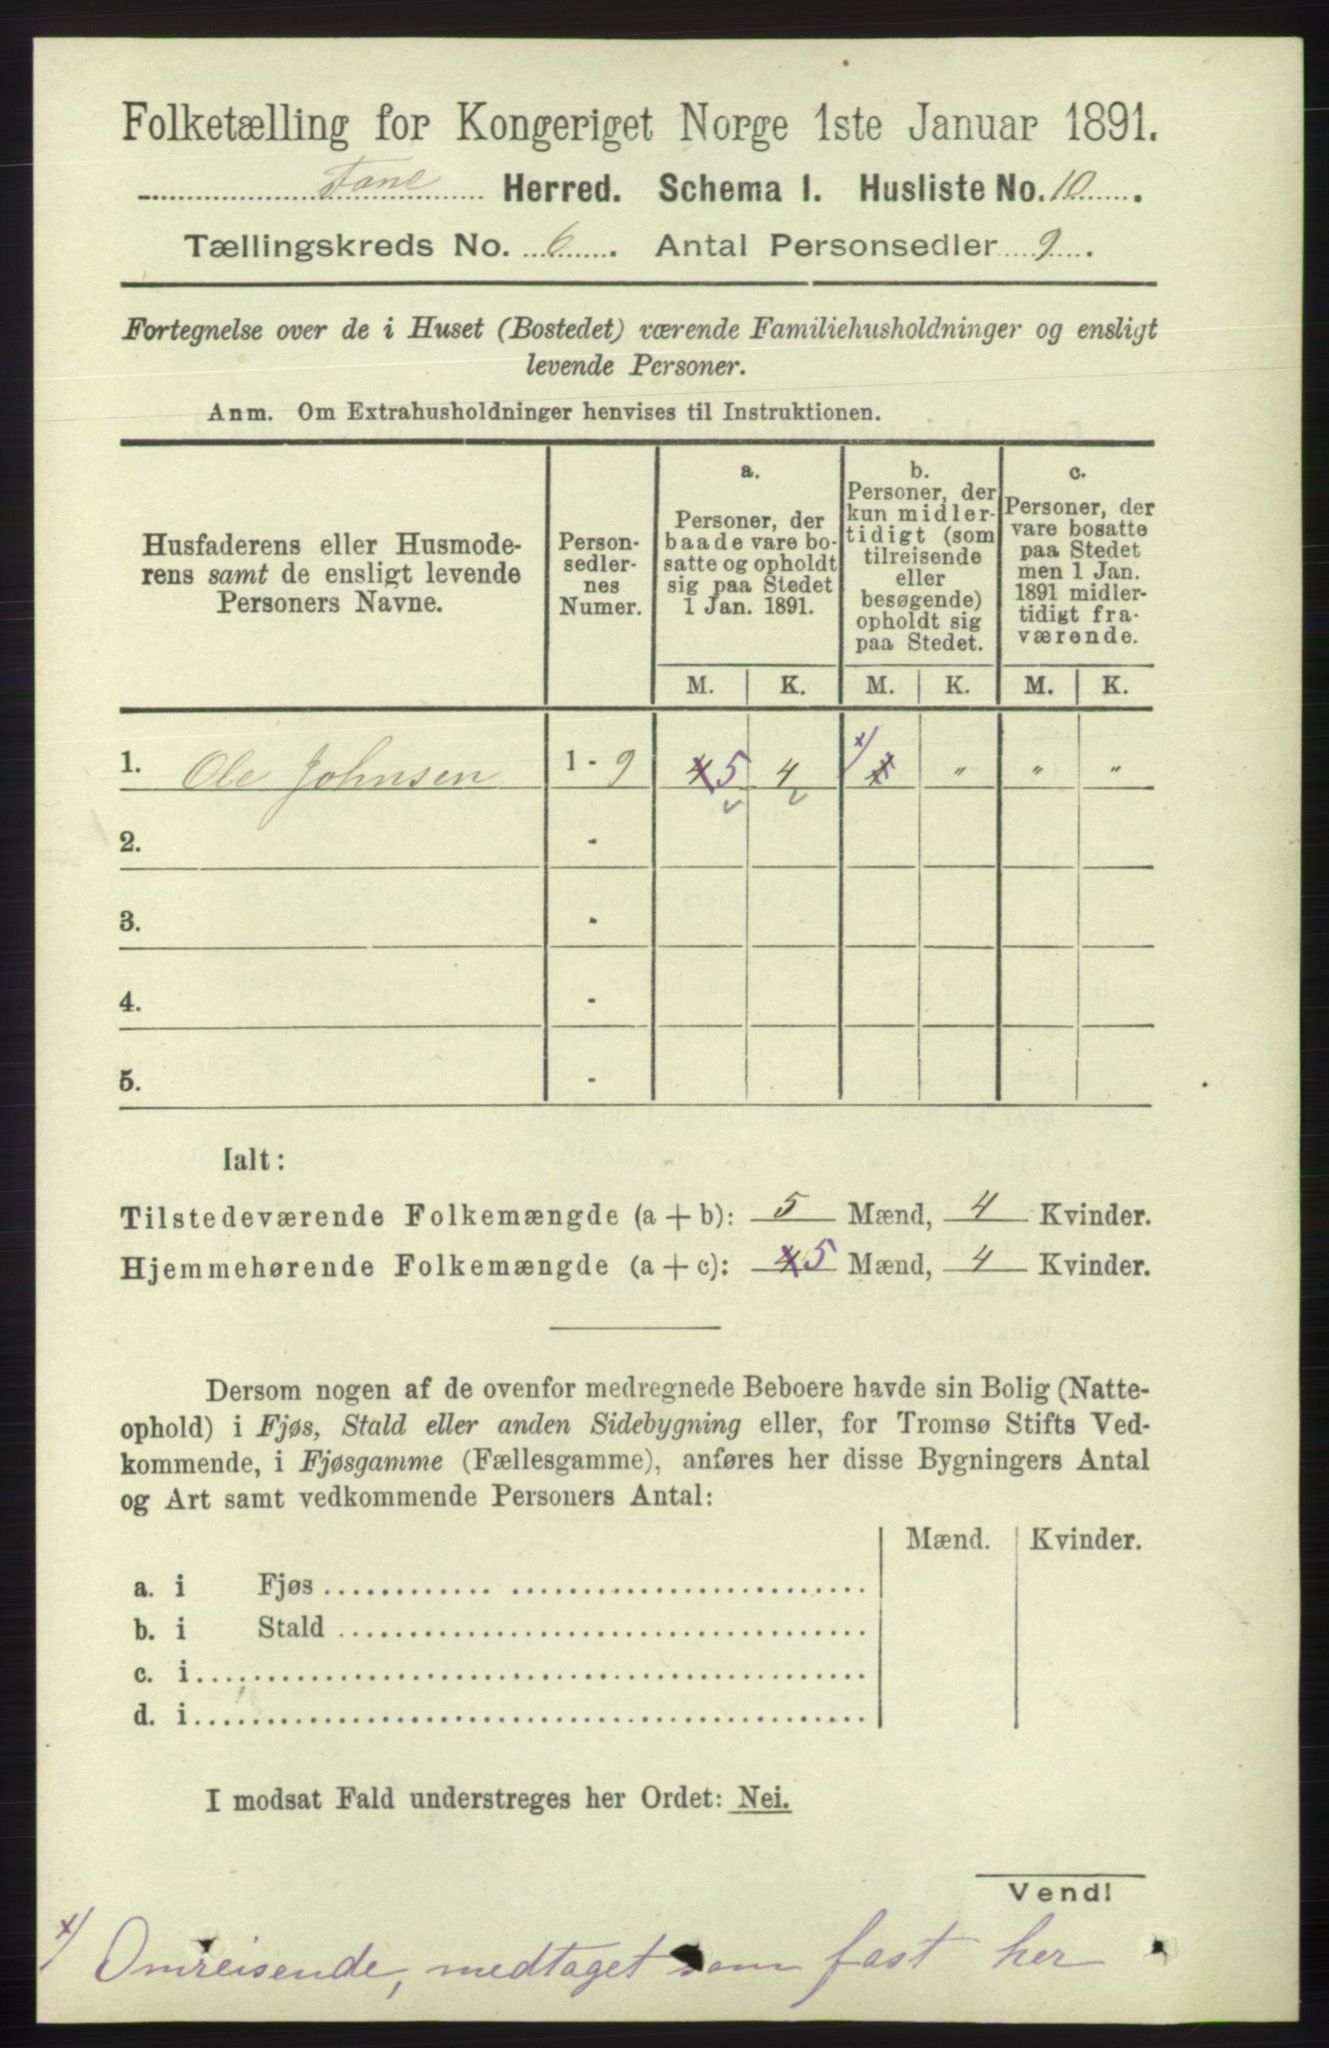 Folketælling for Kongeriget Norge 1ste Januar 1891.
Fane Herred. Schema 1. Husliste No. 10.
Tællingskreds No. 6. Antal Personsedler 9.
Fortegnelse over de i Huset (Bostedet) værende Familiehusholdninger og ensligt
levende Personer.
Anm. Om Extrahusholdninger henvises til Instruktionen.
Husfaderens eller Husmode-
rens samt de ensligt levende
Personers Navne.
Person-
sedler-
nes
Numer.
a.
Personer, der
baade vare bo-
satte og opholdt
sig paa Stedet
1 Jan. 1891.
b.
Personer, der
kun midler-
tidigt (som
tilreisende
eller
besøgende)
opholdt sig
paa Stedet.
c.
Personer, der
vare bosatte
paa Stedet
men 1 Jan.
1891 midler-
tidigt fra-
værende.
M. K. M. K. M. K.
1. Ole Johnsen 1 - 9 4 5 4 x) 1 " " "
2. -
3. -
4. -
5. -
Ialt:
Tilstedeværende Folkemængde (a + b): 5 Mænd, 4 Kvinder.
Hjemmehørende Folkemængde (a + c): 4 5 Mænd, 4 Kvinder.
Dersom nogen af de ovenfor medregnede Beboere havde sin Bolig (Natte-
ophold) i Fjøs, Stald eller anden Sidebygning eller, for Tromsø Stifts Ved-
kommende, i Fjøsgamme (Fællesgamme), anføres her disse Bygningers Antal
og Art samt vedkommende Personers Antal:
Mænd. Kvinder.
a. i Fjøs
b. i Stald
c. i
d. i
I modsat Fald understreges her Ordet: Nei.
Vend!
x) Omreisende, medtaget som fast her